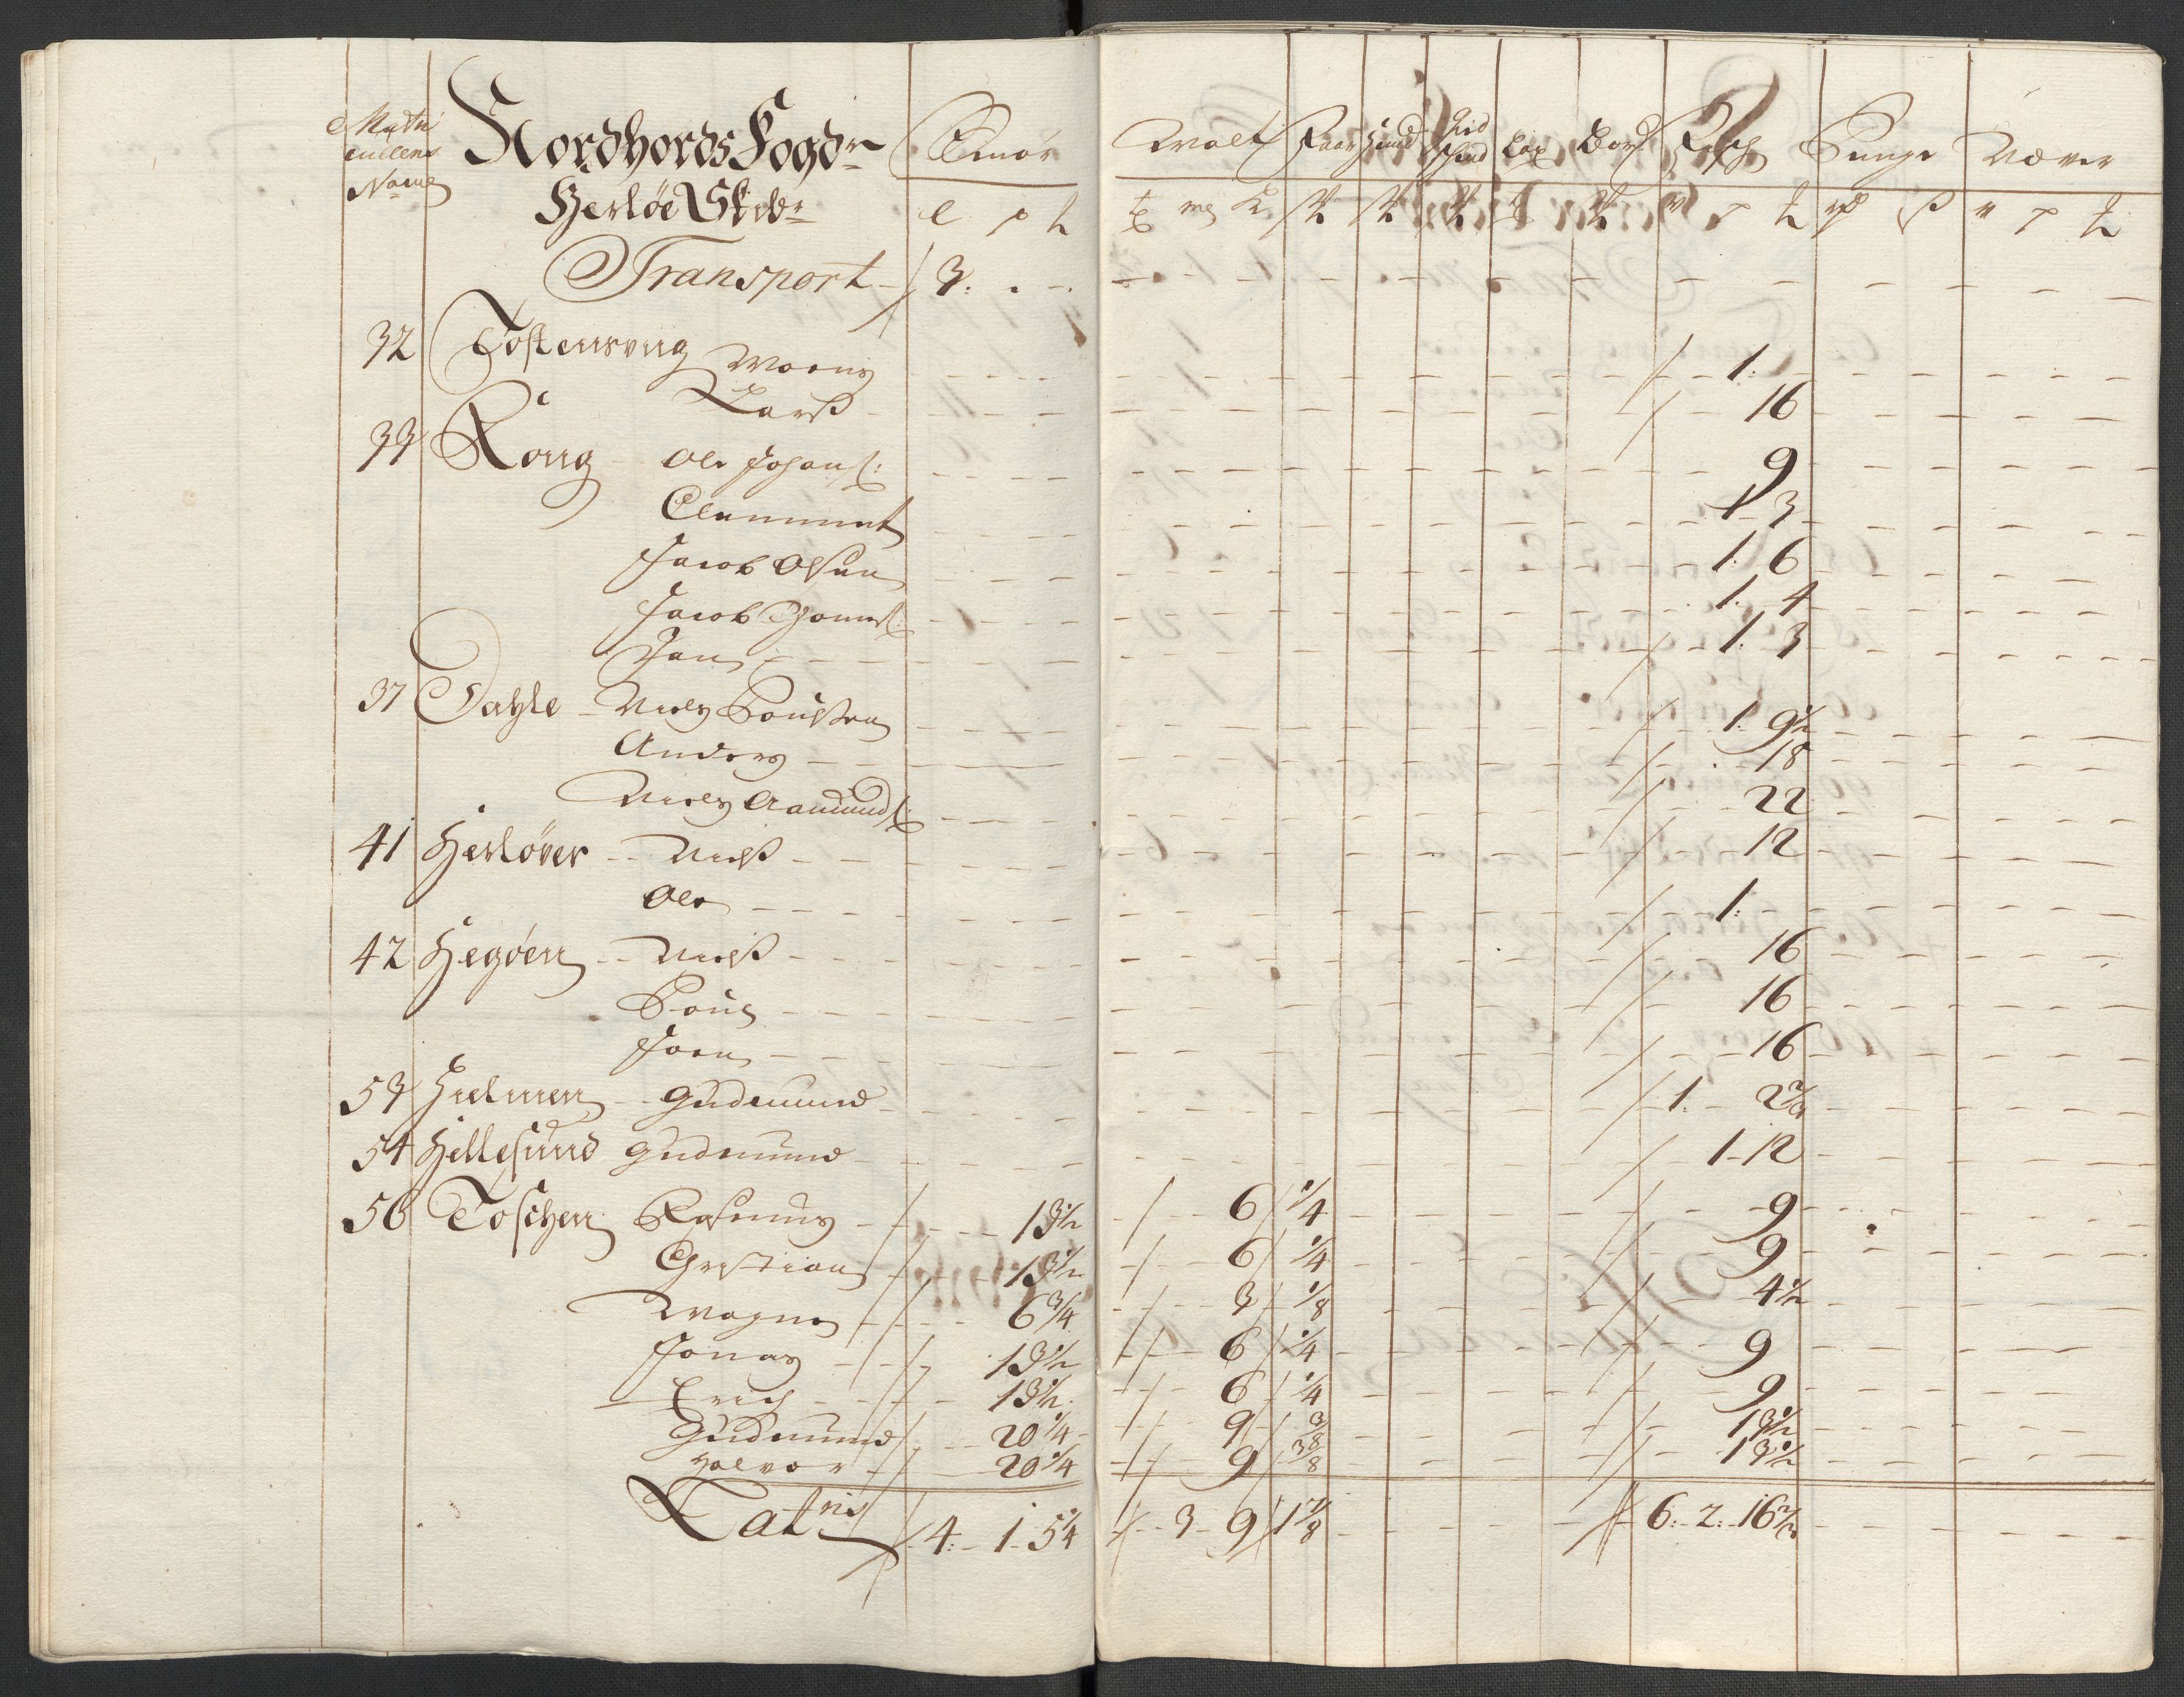 Matri
cullens
No
Nordhords Fogdr
Herløe Skibr
Smør Malt Faar Hund Kid skind Lax Bord Fisch Penge Wæver
Transport 3.
32 Tostensvug Moens 1.
Larss 16
33 Rong Ole Johans: 9
Clemmet 1 3
Jacob Olsen 1. 6
Jacob Thomes: 1. 4
Jan 1. 3
37 Dahle Niels Poulsen 1. 9 1/2
Anders 18
Niels Aamunds: 22
41 Herløver Nielss 12
Ole 1.
42 Hegøen Nielss 16
Pous 16
Joen 16
53 Hielmen Gudemund 1. 2 2/3
54 Hellesund Gudmund 1. 12
56 Toschen Rasmus 13 1/2 6 1/4 9
Christian 13 1/2 6 1/4 9
Magne 6 3/4 3 1/8 4 1/2
Jonas 13 1/2 6 1/4 9
Erich 13 1/2 6 1/4 9
Gudmund 20 1/4 9 3/8 13 1/2
Halvor 20 1/4 9 3/8 13 1/2
Latris 4. 1. 5 1/4 3 9 1 7/8 6. 2. 16 2/3